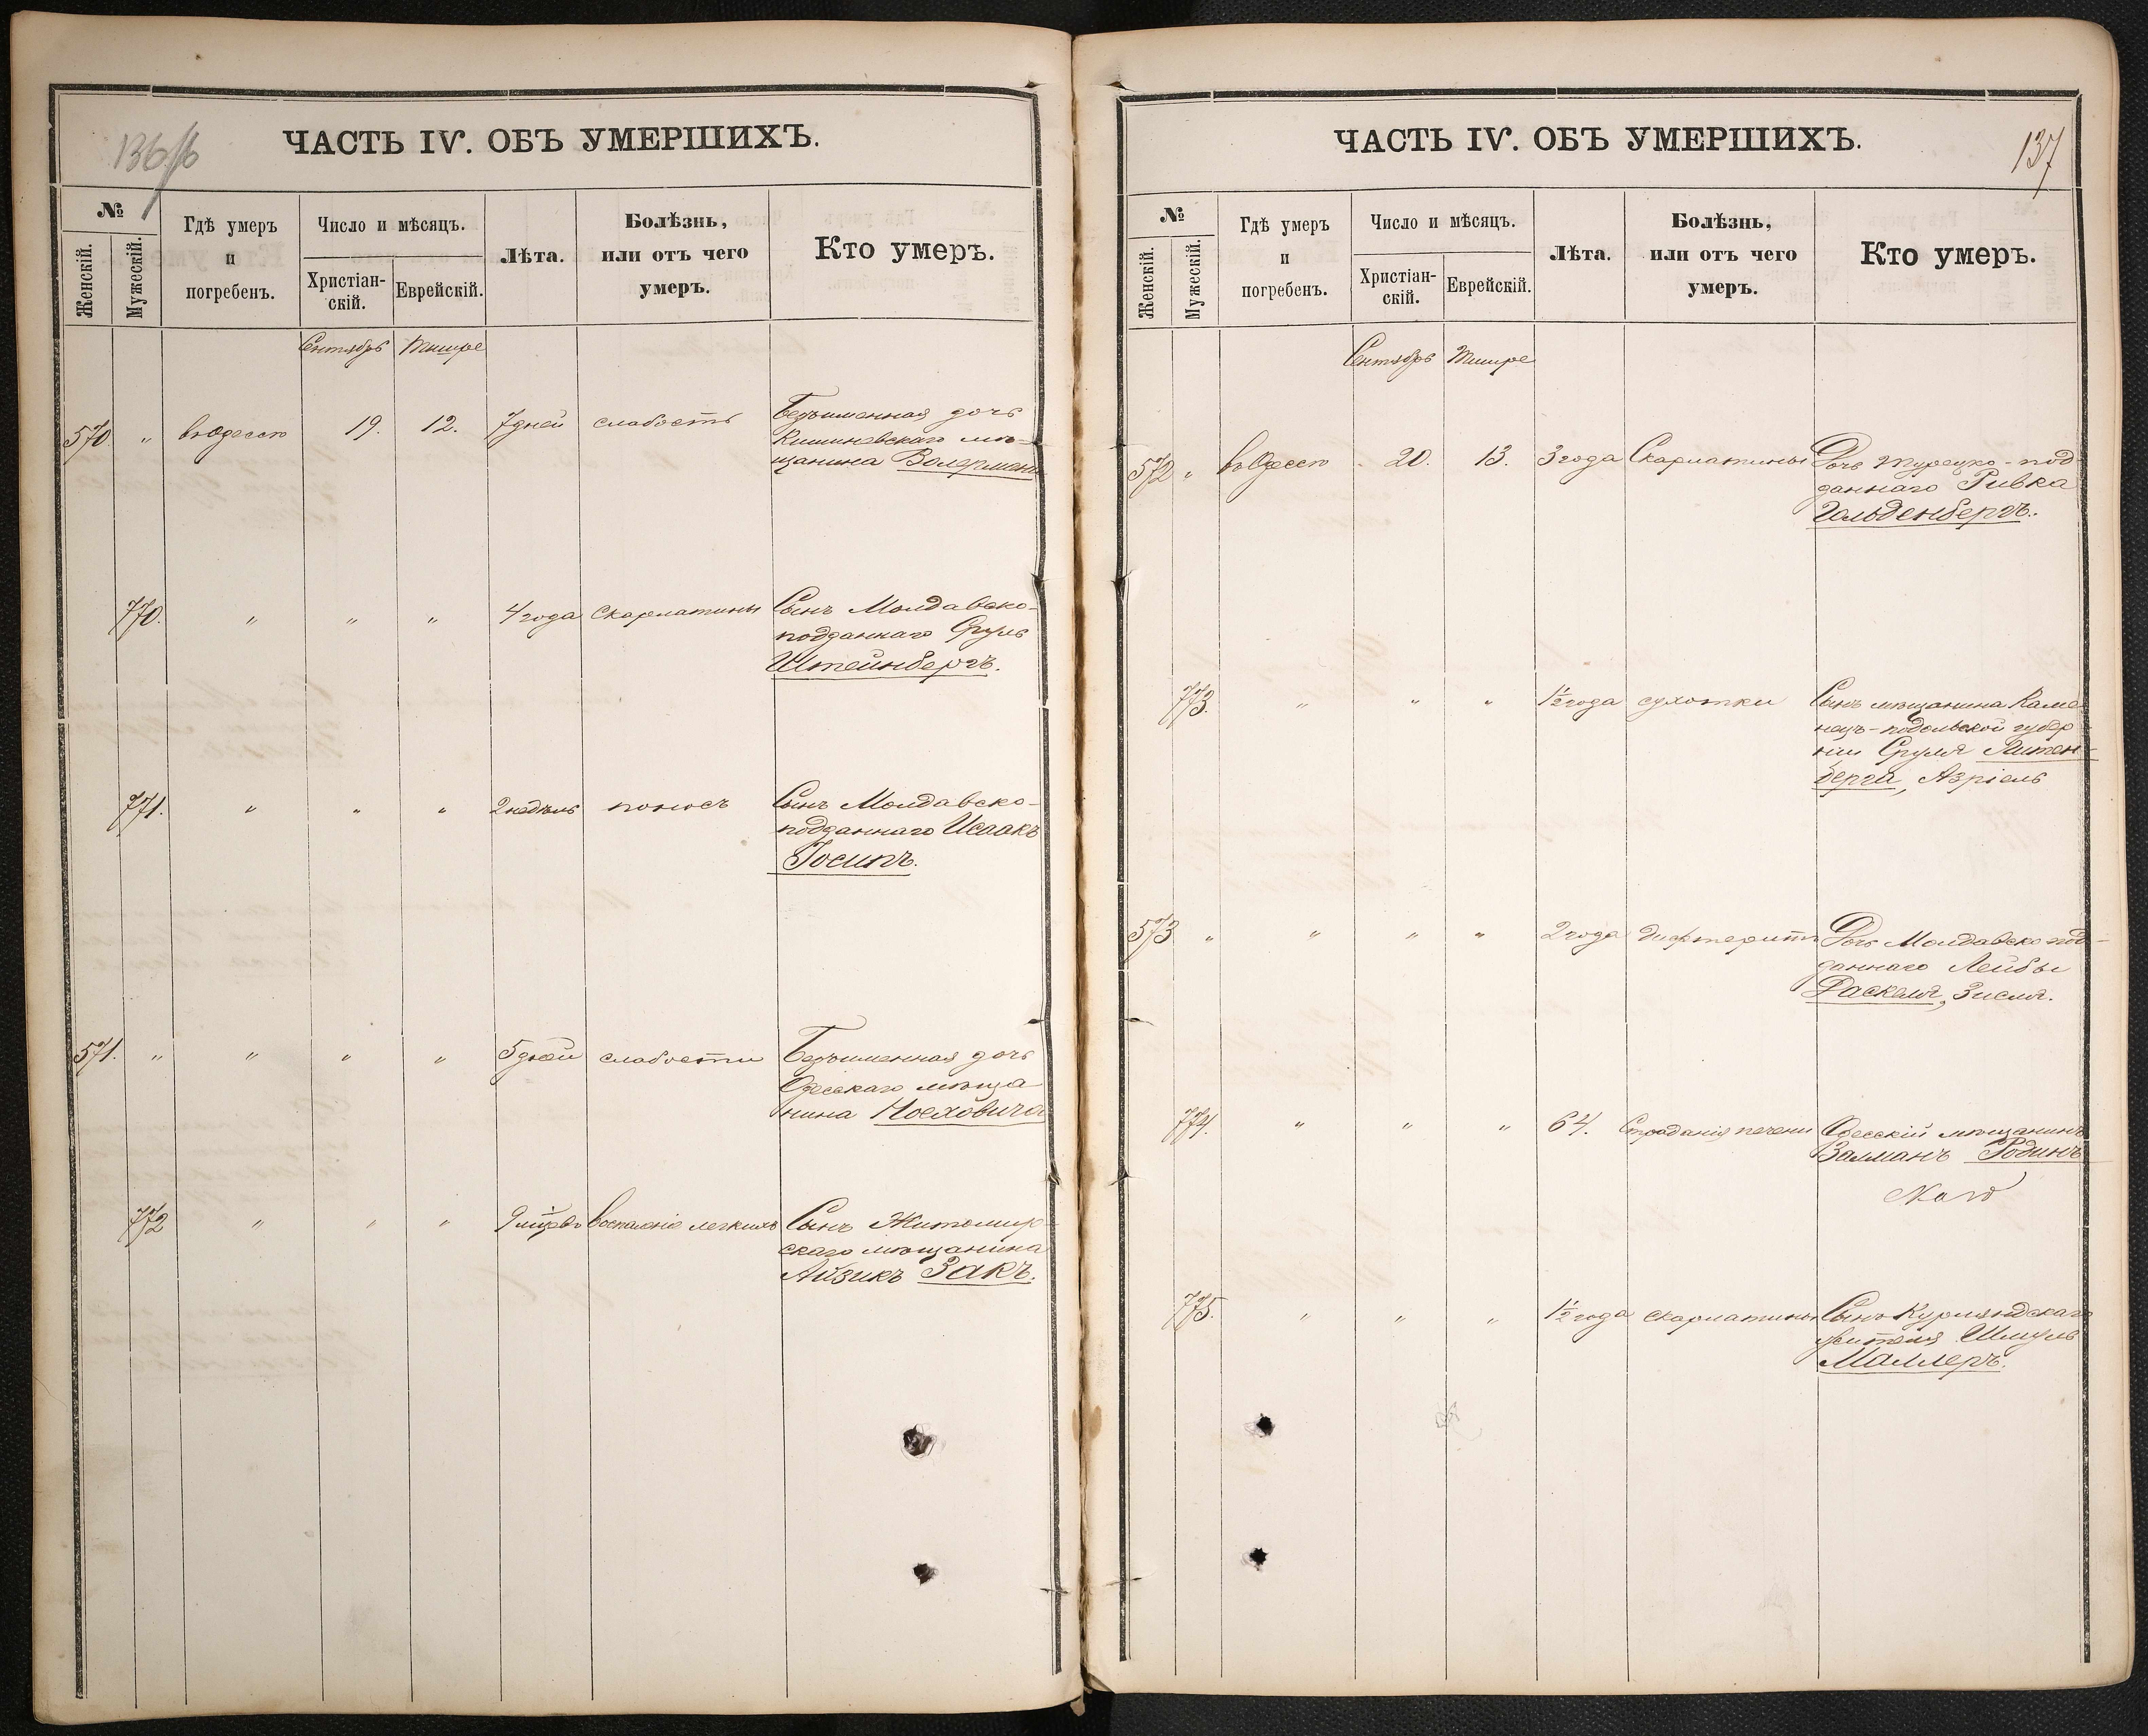 136/б
ЧАСТЬ IV. ОБЪ УМЕРШИХЪ.
№
Женскій.
Мужескій.
Гдѣ умеръ
и
погребенъ.
Число и мѣсяцъ.
Христіан-
скій.
Еврейскій.
Лѣта.
Болѣзнь,
или отъ чего
умеръ.
Кто умеръ.
Сентябрь Тишре
570. " въ Одессѣ 19. 12. 7 дней слабость Безъименная дочь
Кишиневскаго мѣ-
щанина Волермана
770. " " " 4 года Скарлатины Сынъ Молдавско-
подданнаго Сруль
Штейнбергъ.
771. " " " 2 недѣль поносъ Сынъ Молдавско-
подданнаго Исаакъ
Іосипъ.
571. " " " " 5 дней слабости Безъименная дочь
Одесскаго мѣща
нина
772 " " " 9 воспаленіе легкихъ Сынъ Житомир-
скаго мѣщанина
Айзикъ Закъ.
137
ЧАСТЬ IV. ОБЪ УМЕРШИХЪ.
№
Женскій.
Мужескій.
Гдѣ умеръ
и
погребенъ.
Число и мѣсяцъ.
Христіан-
скій.
Еврейскій.
Лѣта.
Болѣзнь,
или отъ чего
умеръ.
Кто умеръ.
Сентябрь Тишре
572 " въ Одессѣ 20. 13. 3 года Скарлатины Дочь турецко-под
даннаго Ривка
Гольденбергъ.
773. " " " 1½ года сухотки Сынъ мѣщанина Каме
нецъ-подольской губер
ніи Сруля Литен-
берга, Азріель
573 " " " " 2 года дифтеритъ Дочь Молдавско под-
даннаго Лейбы
Раскеля, Зисля.
774. " " " 64. Страданія печени Одесскій мѣщанинъ
Залманъ Родинъ
775. " " " 1½ года скарлатины Сынъ Курляндскаго
жителя Шмуль
Маллеръ.